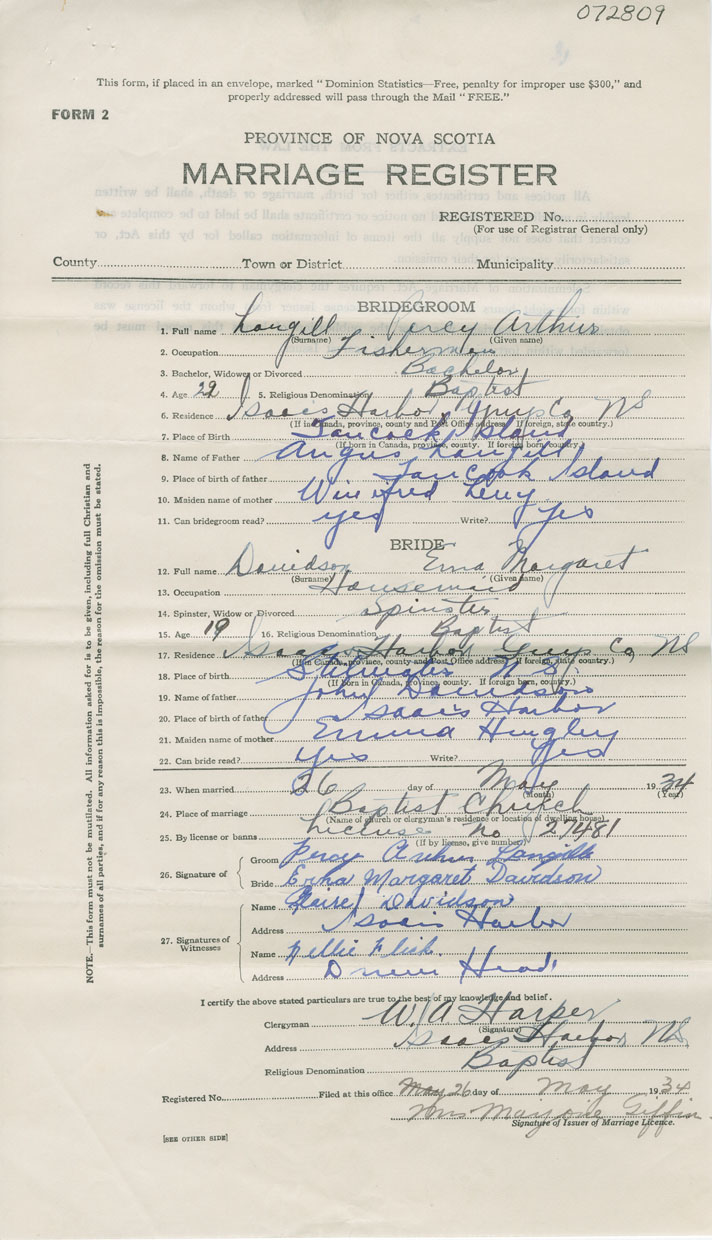 072809
This form, if placed in an envelope, marked "Dominion Statistics—Free, penalty for improper use $300," and
properly addressed will pass through the Mail "FREE."
FORM 2
PROVINCE OF NOVA SCOTIA
MARRIAGE REGISTER
REGISTERED No.
(For use of Registrar General only)
County Town or District Municipality
BRIDEGROOM
1. Full name Langill Percy Arthur
(Surname) (Given name)
2. Occupation Fisherman
3. Bachelor, Widower or Divorced Bachelor
4. Age 22 5. Religious Denomination Baptist
6. Residence Isaacs Harbor Guys Co NS
(If in Canada, province, county and Post Office address. If foreign, state country.)
7. Place of Birth Tancook Island
(If born in Canada, province, county. If foreign born, country.)
8. Name of Father Angus Langill
9. Place of birth of father Tancook Island
10. Maiden name of mother Winifred Levy
11. Can bridegroom read? yes Write? Yes
BRIDE
12. Full name Davidson Erna Margaret
(Surname) (Given name)
13. Occupation Housemaid
14. Spinster, Widow or Divorced Spinster
15. Age 19 16. Religious Denomination Baptist
17. Residence Isaacs Harbor Guys Co NS
(If in Canada, province, county and Post Office address. If foreign, state country.)
18. Place of birth Stillwater N S
(If born in Canada, province, county. If foreign born, country.)
19. Name of father John Davidson
20. Place of birth of father Isaacs Harbor
21. Maiden name of mother Emma Hingley
22. Can bride read? Yes Write? Yes
23. When married 26 day of May 1934
(Month) (Year)
24. Place of marriage Baptist Church
(Name of church or clergyman's residence or location of dwelling house)
25. By license or banns License no 27481
(If by license, give number)
26. Signature of Groom Percy Arthur Langille
Bride Erna Margaret Davidson
27. Signatures of Witnesses Name Davidson
Address Isaacs Harbor
Name Nellie
Address Head
I certify the above stated particulars are true to the best of my knowledge and belief.
Clergyman W A Harper
(Signature)
Address Isaacs Harbor NS
Religious Denomination Baptist
Registered No. Filed at this office May 26 day of May 1934
Mrs Marjorie Giffin
Signature of Issuer of Marriage Licence.
[SEE OTHER SIDE]
NOTE.—This form must not be mutilated. All information asked for is to be given, including full Christian and
surnames of all parties, and if for any reason this is impossible, the reason for the omission must be stated.